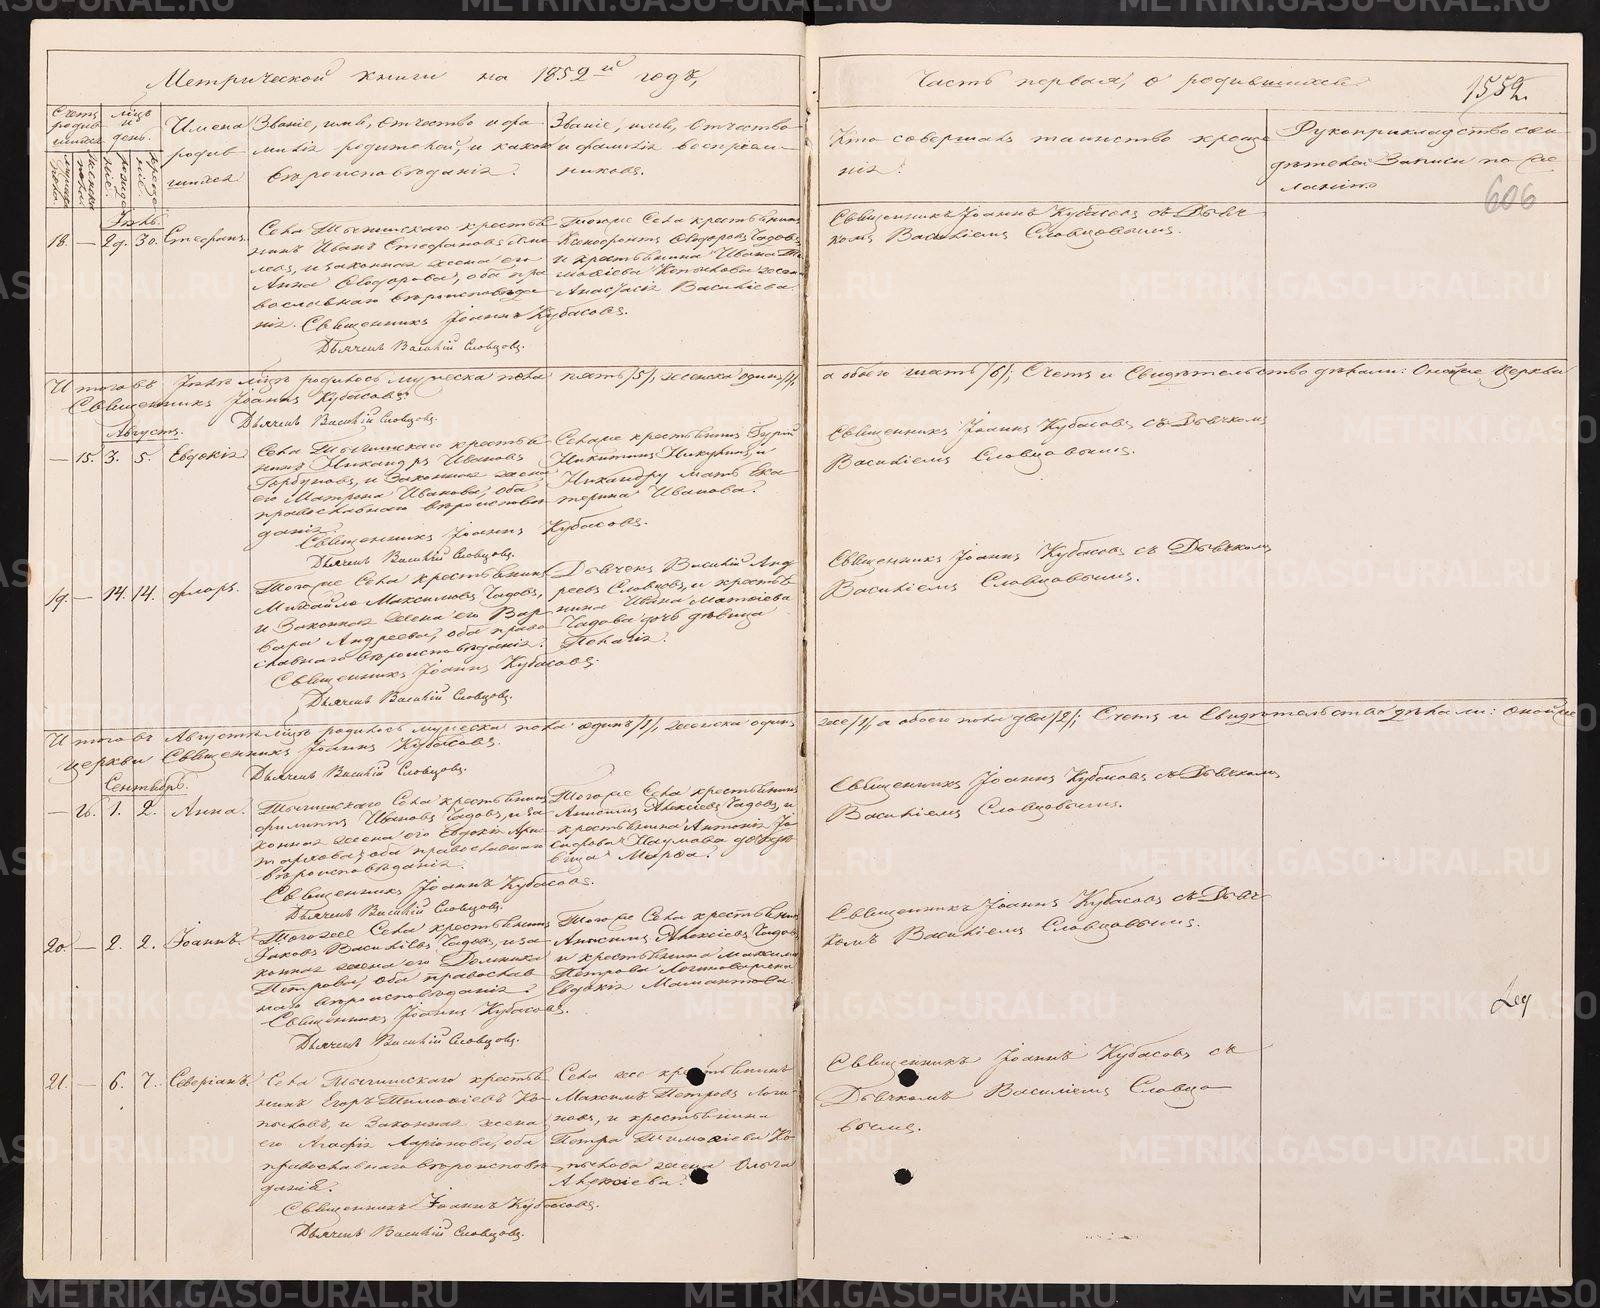 Метрической книги на 1852й годъ,
Часть первая, о родившихся
1552.
606
Счетъ родив шихся
мѣсяцъ и день.
Имена родив шихся
Званіе, имя, отчество и фа
милія родителей, и какого
вѣроисповѣданія.
Званіе, имя, отчество
и фамилія воспрiем
никовъ.
Кто совершалъ таинство креще
нія.
Рукоприкладство сви
дѣтелей записи по же
ланію
Іюль.
18. — 29. 30. Стефанъ.
Села крестья
нинъ Иванъ Стефановъ
и законная жена его
Анна Ѳеодорова, оба пра
вославнаго вѣроисповѣда
нія. Священникъ Іоаннъ Кубасовъ.
Дьячекъ Василій Словцовъ.
Тогоже Села крестьянинъ
Ксенофонтъ Ѳеодоровъ Чадовъ,
и крестьянина Ивана Ти
моѳіева Копылова жена
Анастасія Василіева.
Священникъ Іоаннъ Кубасовъ съ Дьяч
комъ Василіемъ Словцовымъ.
Итого въ Іюлѣ мѣсяцѣ родилось мужеска пола пять /5/, женска одинъ /1/,
а обоего шесть /6/; Счетъ и Свидѣтельство дѣлали: Оной же Церкви
Священникъ Іоаннъ Кубасовъ.
Дьячекъ Василій Словцовъ.
Августъ.
— 15. 3. 5. Евдокія
Села крестья
нинъ Никандръ Ивановъ
Горбуновъ, и Законная жена
его Матрона Иванова, оба
православнаго вѣроисповѣ
данія.
Священникъ Іоаннъ Кубасовъ.
Дьячекъ Василій Словцовъ.
Села же крестьянинъ Гурій
Никитинъ и
Никандру мать Ека
терина Иванова.
Священникъ Іоаннъ Кубасовъ съ Дьячкомъ
Василіемъ Словцовымъ.
19. — 14. 14. Флоръ.
Тогоже Села крестьянинъ
Михайло Максимовъ Чадовъ,
и Законная жена его Вар
вара Андреева, оба право
славнаго вѣроисповѣданія.
Священникъ Іоаннъ Кубасовъ.
Дьячекъ Василій Словцовъ.
Дьячекъ Василій Анд
реевъ Словцовъ, и крестья
нина Ивана Матвіева
Чадова дочь дѣвица
Пелагія.
Священникъ Іоаннъ Кубасовъ съ Дьячкомъ
Василіемъ Словцовымъ.
Итого въ Августѣ мѣсяцѣ родилось мужеска пола одинъ /1/, женска одинъ
же /1/, а обоего пола два /2/; Счетъ и Свидѣтельство дѣлали: оной же
церкви Священникъ Іоаннъ Кубасовъ.
Дьячекъ Василій Словцовъ.
Сентябрь.
— 16. 1. 2. Анна.
Села крестьянинъ
Филиппъ Ивановъ Чадовъ, и за
конная жена его Евдокія Ари
стархова, оба православнаго
вѣроисповѣданія.
Священникъ Іоаннъ Кубасовъ.
Дьячекъ Василій Словцовъ.
Тогоже Села крестьянинъ
Анисимъ Алексіевъ Чадовъ, и
крестьянина Антонія Іо
сифова Наумова дочь дѣ
вица Марѳа.
Священникъ Іоаннъ Кубасовъ съ Дьячкомъ
Василіемъ Словцовымъ.
20. — 2. 2. Іоаннъ.
Тогоже Села крестьянинъ
Іаковъ Василіевъ Чадовъ, и за
конная жена его Домника
Петрова, оба православ
наго вѣроисповѣданія.
Священникъ Іоаннъ Кубасовъ.
Дьячекъ Василій Словцовъ.
Тогоже Села крестьянинъ
Анисимъ Алексіевъ Чадовъ,
и крестьянина Максима
Петрова Логинова жена
Евдокія Мамантова.
Священникъ Іоаннъ Кубасовъ съ Дьяч
комъ Василіемъ Словцовымъ.
21. — 6. 7. Северіанъ.
Села крестья
нинъ Егоръ Тимоѳіевъ Ко
пыловъ, и Законная жена
его Агафія Ларіонова, оба
православнаго вѣроисповѣ
данія.
Священникъ Іоаннъ Кубасовъ.
Дьячекъ Василій Словцовъ.
Села же крестьянинъ
Максимъ Петровъ Логи
новъ, и крестьянина
Петра Тимоѳіева Ко
пылова жена Ольга
Алексіева.
Священникъ Іоаннъ Кубасовъ съ
Дьячкомъ Василіемъ Словцо
вымъ.
METRIKI.GASO-URAL.RU